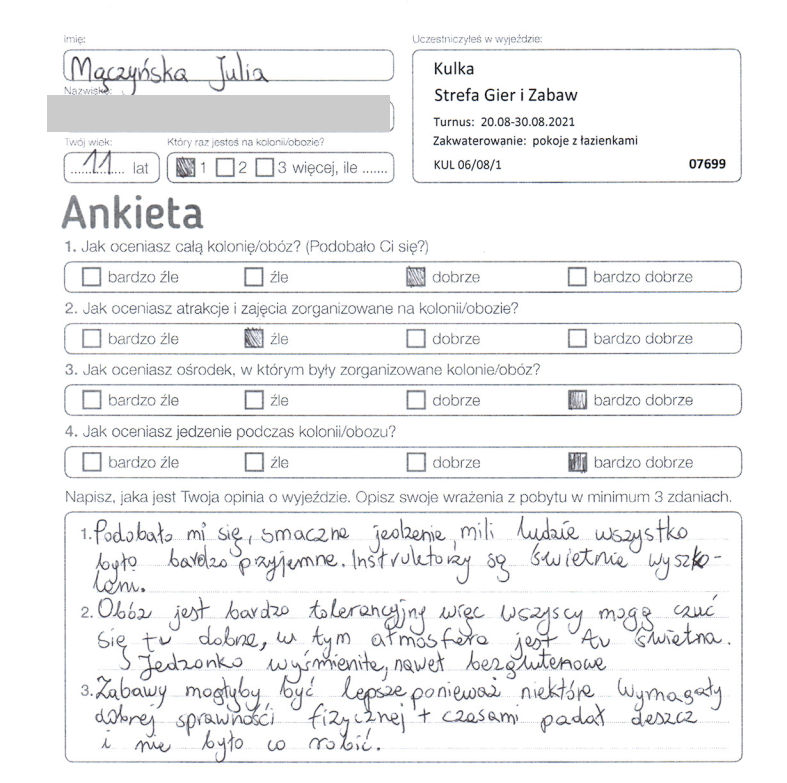 Imię:
Mączyńska Julia
Nazwisko:
Twój wiek:
Który raz jesteś na kolonii/obozie?
11 lat
1 2 3 więcej, ile .......
Uczestniczyłeś w wyjeździe:
Kulka
Strefa Gier i Zabaw
Turnus: 20.08-30.08.2021
Zakwaterowanie: pokoje z łazienkami
KUL 06/08/1 07699
Ankieta
1. Jak oceniasz całą kolonię/obóz? (Podobało Ci się?)
bardzo źle źle dobrze bardzo dobrze
2. Jak oceniasz atrakcje i zajęcia zorganizowane na kolonii/obozie?
bardzo źle źle dobrze bardzo dobrze
3. Jak oceniasz ośrodek, w którym były zorganizowane kolonie/obóz?
bardzo źle źle dobrze bardzo dobrze
4. Jak oceniasz jedzenie podczas kolonii/obozu?
bardzo źle źle dobrze bardzo dobrze
Napisz, jaka jest Twoja opinia o wyjeździe. Opisz swoje wrażenia z pobytu w minimum 3 zdaniach.
1. Podobało mi się, smaczne jedzenie, mili ludzie wszystko
było bardzo przyjemne. Instruktorzy są świetnie wyszko-
leni.
2. Obóz jest bardzo tolerancyjny więc wszyscy mogą czuć
się tu dobrze, w tym atmosfera jest tu świetna.
Jedzonko wyśmienite, nawet bezglutenowe
3. Zabawy mogłyby być lepsze ponieważ niektóre wymagały
dobrej sprawności fizycznej + czasami padał deszcz
i nie było co robić.